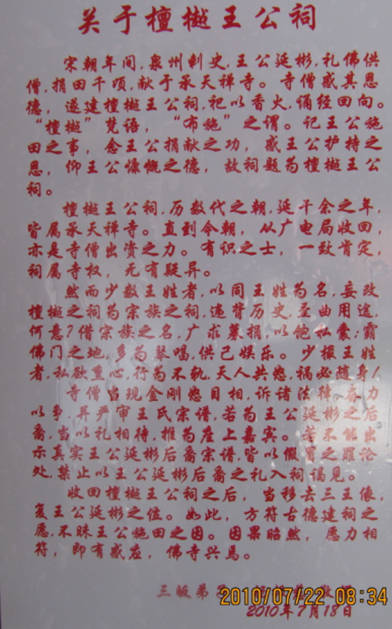 关于檀樾王公祠
宋朝年间，泉州刺史，王公延彬，礼佛供
僧，捐田千顷，献于承天禅寺。寺僧感其恩
德，遂建檀樾王公祠，祀以香火，诵经回向。
“檀樾”梵语，“布施”之谓。记王公施
田之事，念王公捐献之功，感王公护持之
恩，仰王公慷慨之德，故祠题为檀樾王公
祠。
檀樾王公祠，历数代之朝，延千余之年，
皆属承天禅寺。直到今朝，从广电局收回，
亦是寺僧出资之力。有识之士，一致肯定，
祠属寺权，无有疑异。
然而少数王姓者，以同王姓为名，妄改
檀樾之祠为宗族之祠，违背历史，歪曲用途，
何意？借宗族之名，广求募捐，以饱私囊；霸
佛门之地，多为琴唱，供己娱乐。少报王姓
者，私欲熏心，行为不轨，天人共怒，祸必随身！
寺僧当现金刚怒目相，诉诸法律，
以争，并严审王氏宗谱，若为王公延彬之后
裔，当以礼相待，推为座上嘉宾。若不能出
示真实王公延彬后裔宗谱，皆以假冒之罪论
处，禁止以王公延彬后裔之礼入祠谒见。
收回檀樾王公祠之后，当移去三王像，
复王公延彬之位。如此，方符古德建祠之
愿，不昧王公施田之因。因果昭然，愿力相
符，即有感应，佛寺兴焉。
三皈弟
2010年7月18日
2010/07/22 08:34